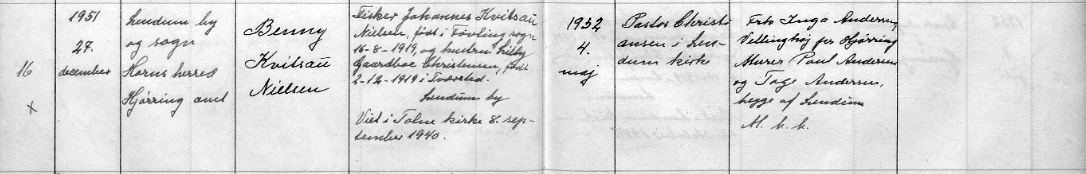 16
x
1951
27.
december
Lendum by
og sogn
Horns herred
Hjørring amt
Benny
Kvitsau
Nielsen
Fisker Johannes Kvitsau
Nielsen, født i Tøvling sogn
16-8-1919, og hustru Lilly
Gaardboe Christensen, født
2-12-1919 i Tversted.
Lendum by
Viet i Tolne kirke 8. sep-
tember 1940.
1952
4.
maj
Pastor Christi-
ansen i Len-
dum kirke
Frk. Inga Andersen,
Vellinghøj per Hjørring
Murer Paul Andersen
og Tage Andersen,
begge af Lendum
M. b. b.